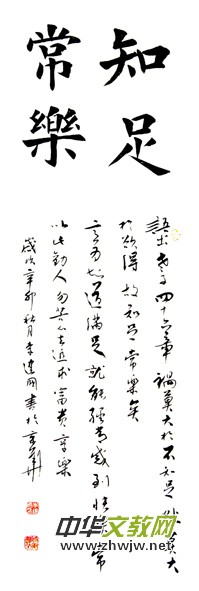 知足
常樂
語出老子四十六章禍莫大於不知足咎莫大
於欲得故知足常樂矣
言为知道滿足就能經常感到快樂常
以此勸人勿苦苦追求富貴享樂
歲次辛卯秋月李建國書於京華
中华文教网
www.zhwjw.net